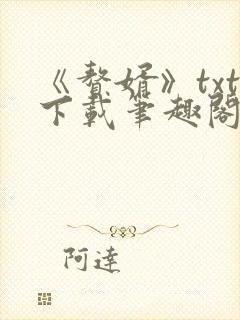 《赘婿》txt
下载 笔趣阁
阿達